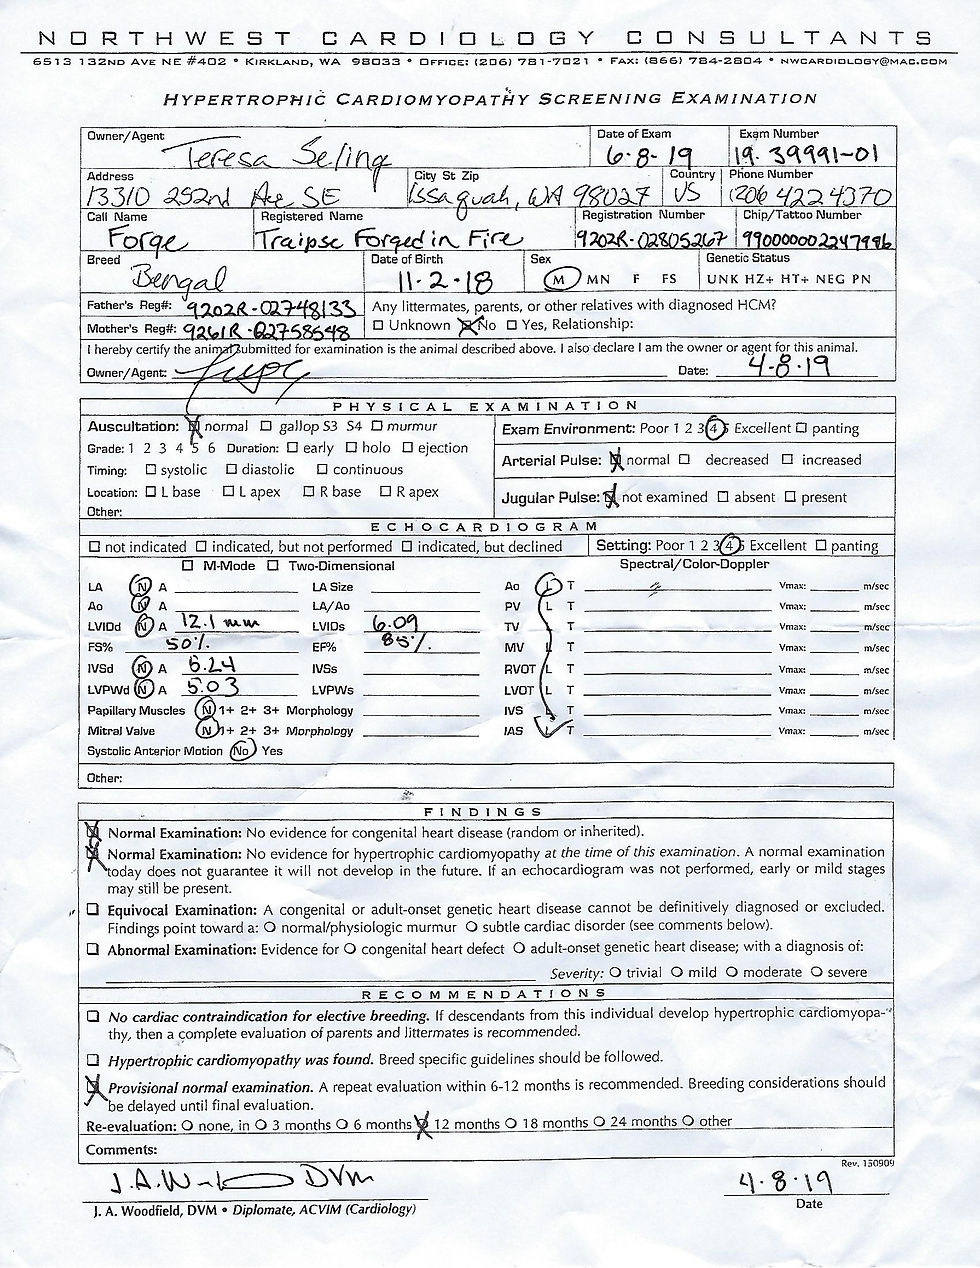 NORTHWEST CARDIOLOGY CONSULTANTS
6513 132ND AVE NE #402 • KIRKLAND, WA 98033 • OFFICE: (206) 781-7021 • FAX: (866) 784-2804 • NWCARDIOLOGY@MAC.COM
HYPERTROPHIC CARDIOMYOPATHY SCREENING EXAMINATION
Owner/Agent Teresa Seling Date of Exam 6-8-19 Exam Number 19-39991-01
Address 13310 252nd Ave SE City St Zip Issaquah, WA 98027 Country US Phone Number (206 422 4370
Call Name Forge Registered Name Traipse Forged in Fire Registration Number 9202R-02805267 Chip/Tattoo Number
Breed Bengal Date of Birth 11-2-18 Sex M MN F FS Genetic Status UNK HZ+ HT+ NEG PN
Father's Reg#: 9202R-02748133 Any littermates, parents, or other relatives with diagnosed HCM?
Mother's Reg#: 9261R-02758548 Unknown No Yes, Relationship:
I hereby certify the animal submitted for examination is the animal described above. I also declare I am the owner or agent for this animal.
Owner/Agent: Date: 4-8-19
PHYSICAL EXAMINATION
Auscultation: normal gallop S3 S4 murmur Exam Environment: Poor 1 2 3 4 5 Excellent panting
Grade: 1 2 3 4 5 6 Duration: early holo ejection Arterial Pulse: normal decreased increased
Timing: systolic diastolic continuous
Location: L base L apex R base R apex Jugular Pulse: not examined absent present
Other:
ECHOCARDIOGRAM
not indicated indicated, but not performed indicated, but declined Setting: Poor 1 2 3 4 5 Excellent panting
M-Mode Two-Dimensional Spectral/Color-Doppler
LA N A LA Size Ao L T Vmax: m/sec
Ao N A LA/Ao PV L T Vmax: m/sec
LVIDd N A 12.1 mm LVIDs 6.09 TV L T Vmax: m/sec
FS% 50% EF% 85% MV L T Vmax: m/sec
IVSd N A IVSs RVOT L T Vmax: m/sec
LVPWd N A 5.03 LVPWs LVOT L T Vmax: m/sec
Papillary Muscles N 1+ 2+ 3+ Morphology IVS L T Vmax: m/sec
Mitral Valve N 1+ 2+ 3+ Morphology IAS L T Vmax: m/sec
Systolic Anterior Motion No Yes
Other:
FINDINGS
Normal Examination: No evidence for congenital heart disease (random or inherited).
Normal Examination: No evidence for hypertrophic cardiomyopathy at the time of this examination. A normal examination
today does not guarantee it will not develop in the future. If an echocardiogram was not performed, early or mild stages
may still be present.
Equivocal Examination: A congenital or adult-onset genetic heart disease cannot be definitively diagnosed or excluded.
Findings point toward a: normal/physiologic murmur subtle cardiac disorder (see comments below).
Abnormal Examination: Evidence for congenital heart defect adult-onset genetic heart disease; with a diagnosis of:
Severity: trivial mild moderate severe
RECOMMENDATIONS
No cardiac contraindication for elective breeding. If descendants from this individual develop hypertrophic cardiomyopa-
thy, then a complete evaluation of parents and littermates is recommended.
Hypertrophic cardiomyopathy was found. Breed specific guidelines should be followed.
Provisional normal examination. A repeat evaluation within 6-12 months is recommended. Breeding considerations should
be delayed until final evaluation.
Re-evaluation: none, in 3 months 6 months 12 months 18 months 24 months other
Comments:
Rev. 150909
J.A.W DVM 4-8-19
J. A. Woodfield, DVM • Diplomate, ACVIM (Cardiology) Date